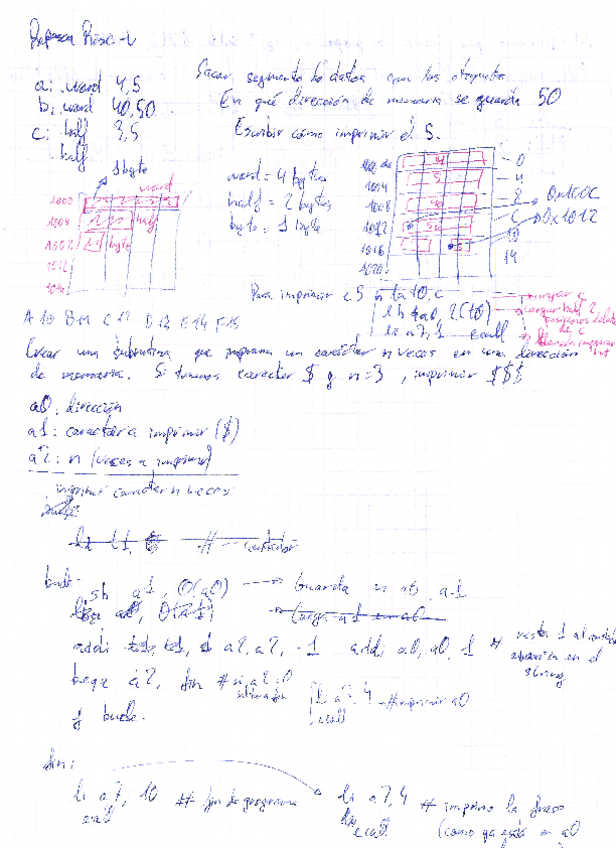 Repaso Risc-V
a: .word 4,5
b: .word 40,50
c: .half 3,5
.half
Sacar segmento de datos con las etiquetas
En qué dirección de memoria se guarda 50
Escribir cómo imprimir el 5.
1 byte
word
1000
1004 half
byte
word = 4 bytes
half = 2 bytes
byte = 1 byte
1004
1008
1012
1016
1020
0
4
8
C
10
14
0x100C
0x1012
Para imprimir el 5 la t0, c
lh a0, 2(t0)
li a7, 1 ecall
cargar c
cargar half 2, posiciones delante de c
llamada imprimir int
A 10 B 11 C 12 D 13 E 14 F 15
Crear una subrutina que imprima un carácter n veces en una dirección
de memoria. Si tenemos caracter $ y n=3, imprimir $$$
a0: dirección
a1: caracter a imprimir ($)
a2: n (veces a imprimir)
imprimir caracter n veces
# contador
bucle:
sb a1, 0(a0) Guarda en a0, a1
Carga a1 en a0
addi a2, a2, -1 addi a0, a0, 1 #
resta 1 al
en el string
beqz a2, fin # si a2=0
li a7, 4 #imprimir a0
ecall
j bucle.
fin:
li a7, 10 # fin de programa
ecall
li a7, 4 # imprime la frase
ecall (como ya está en a0